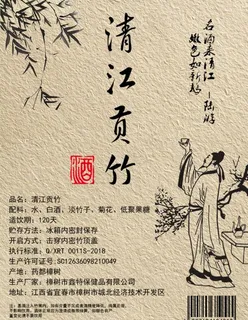 名酒来清江
嫩色如新鹅
—陆游
清江贡竹
酒
品名：清江贡竹
配料：水、白酒、淡竹子、菊花、低聚果糖
适饮期：120天
贮存方法：冰箱内密封保存
开启方式：击穿内密竹顶盖
执行标准：Q/XRT 0011S-2018
生产许可证号：SC12636098210049
产地：药都樟树
生产厂家：樟树市酉特保健品有限公司
地址：江西省宜春市樟树市城北经济技术开发区